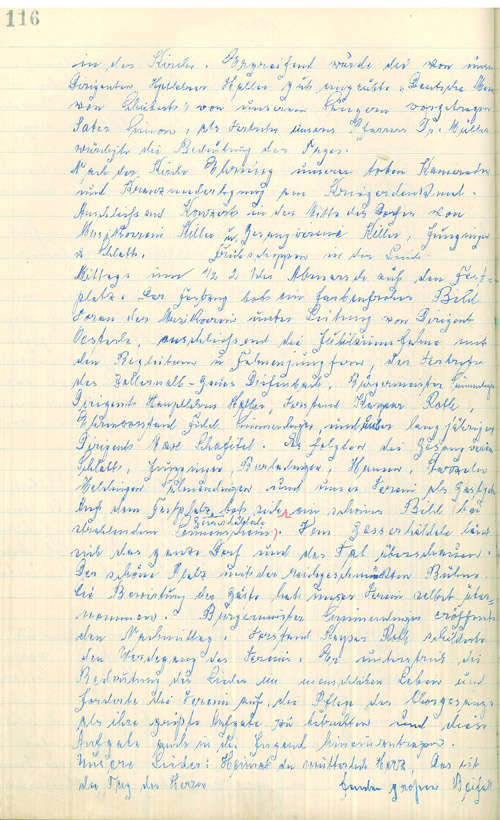 116
in der Kirche. Ergreifend wurde die von unser
Dirigenten Hauptlehrer Heller gut eingeübte "Deutsche Mes
von Schubert" von unseren Sängern vorgetragen
Pater Simon, als Vertreter unseres Pfarrers Dr. Müller
würdigte die Bedeutung des Tages.
Nach der Kirche Ehrung unserer toten Kameraden
und Kranzniederlegung am Kriegerdenkmal.
Anschließend Konzert in der Mitte des Dorfes von
Musikverein Killer u. Gesangverein Killer, Jungingen
u Schlatt. Frühschoppen in der Linde.
Mittags um 1/2 2 Uhr Abmarsch auf den Fest-
platz. Der Festzug bot ein farbenfrohes Bild
Voran der Musikverein unter Leitung von Dirigent
Oesterle, anschließend die Jubiläumsfahne mit
den Begleitern u Fahnenjungfern, der Vertreter
des Zollernalb-Gaues Dieffenbach, Bürgermeister
Dirigent Hauptlehrer Heller, Vorstand Kaspar Roth,
Ehrenvorstand Fidel Simmendinger, und unser langjähriger
Dirigent Max Es folgten die Gesangvereine
Schlatt, Jungingen, Burladingen, Hausen, Starzeln
Melchingen und unser Verein als Gastgeber
Auf dem Festplatz bot sich ein schönes Bild (bei
strahlendem Sonnenschein). Vom
sich das ganze Dorf und das Tal überschauen.
Der schöne Platz mit der reichgeschmückten Bühne.
Die Bewirtung der Gäste hat unser Verein selbst über-
nommen. Bürgermeister Simmendinger eröffnete
den Nachmittag. Vorstand Kaspar Roth schilderte
den Werdegang des Vereins. Er unterstrich die
Bedeutung des Liedes im menschlichen Leben und
forderte die Vereine auf, die Pflege des Chorgesangs
als ihre größte Aufgabe zu betrachten und diese
Aufgabe auch in die Jugend hineinzutragen.
Unsere Lieder: Heimat du Herz, Das ist
der Tag des Herrn fanden großen Beifall